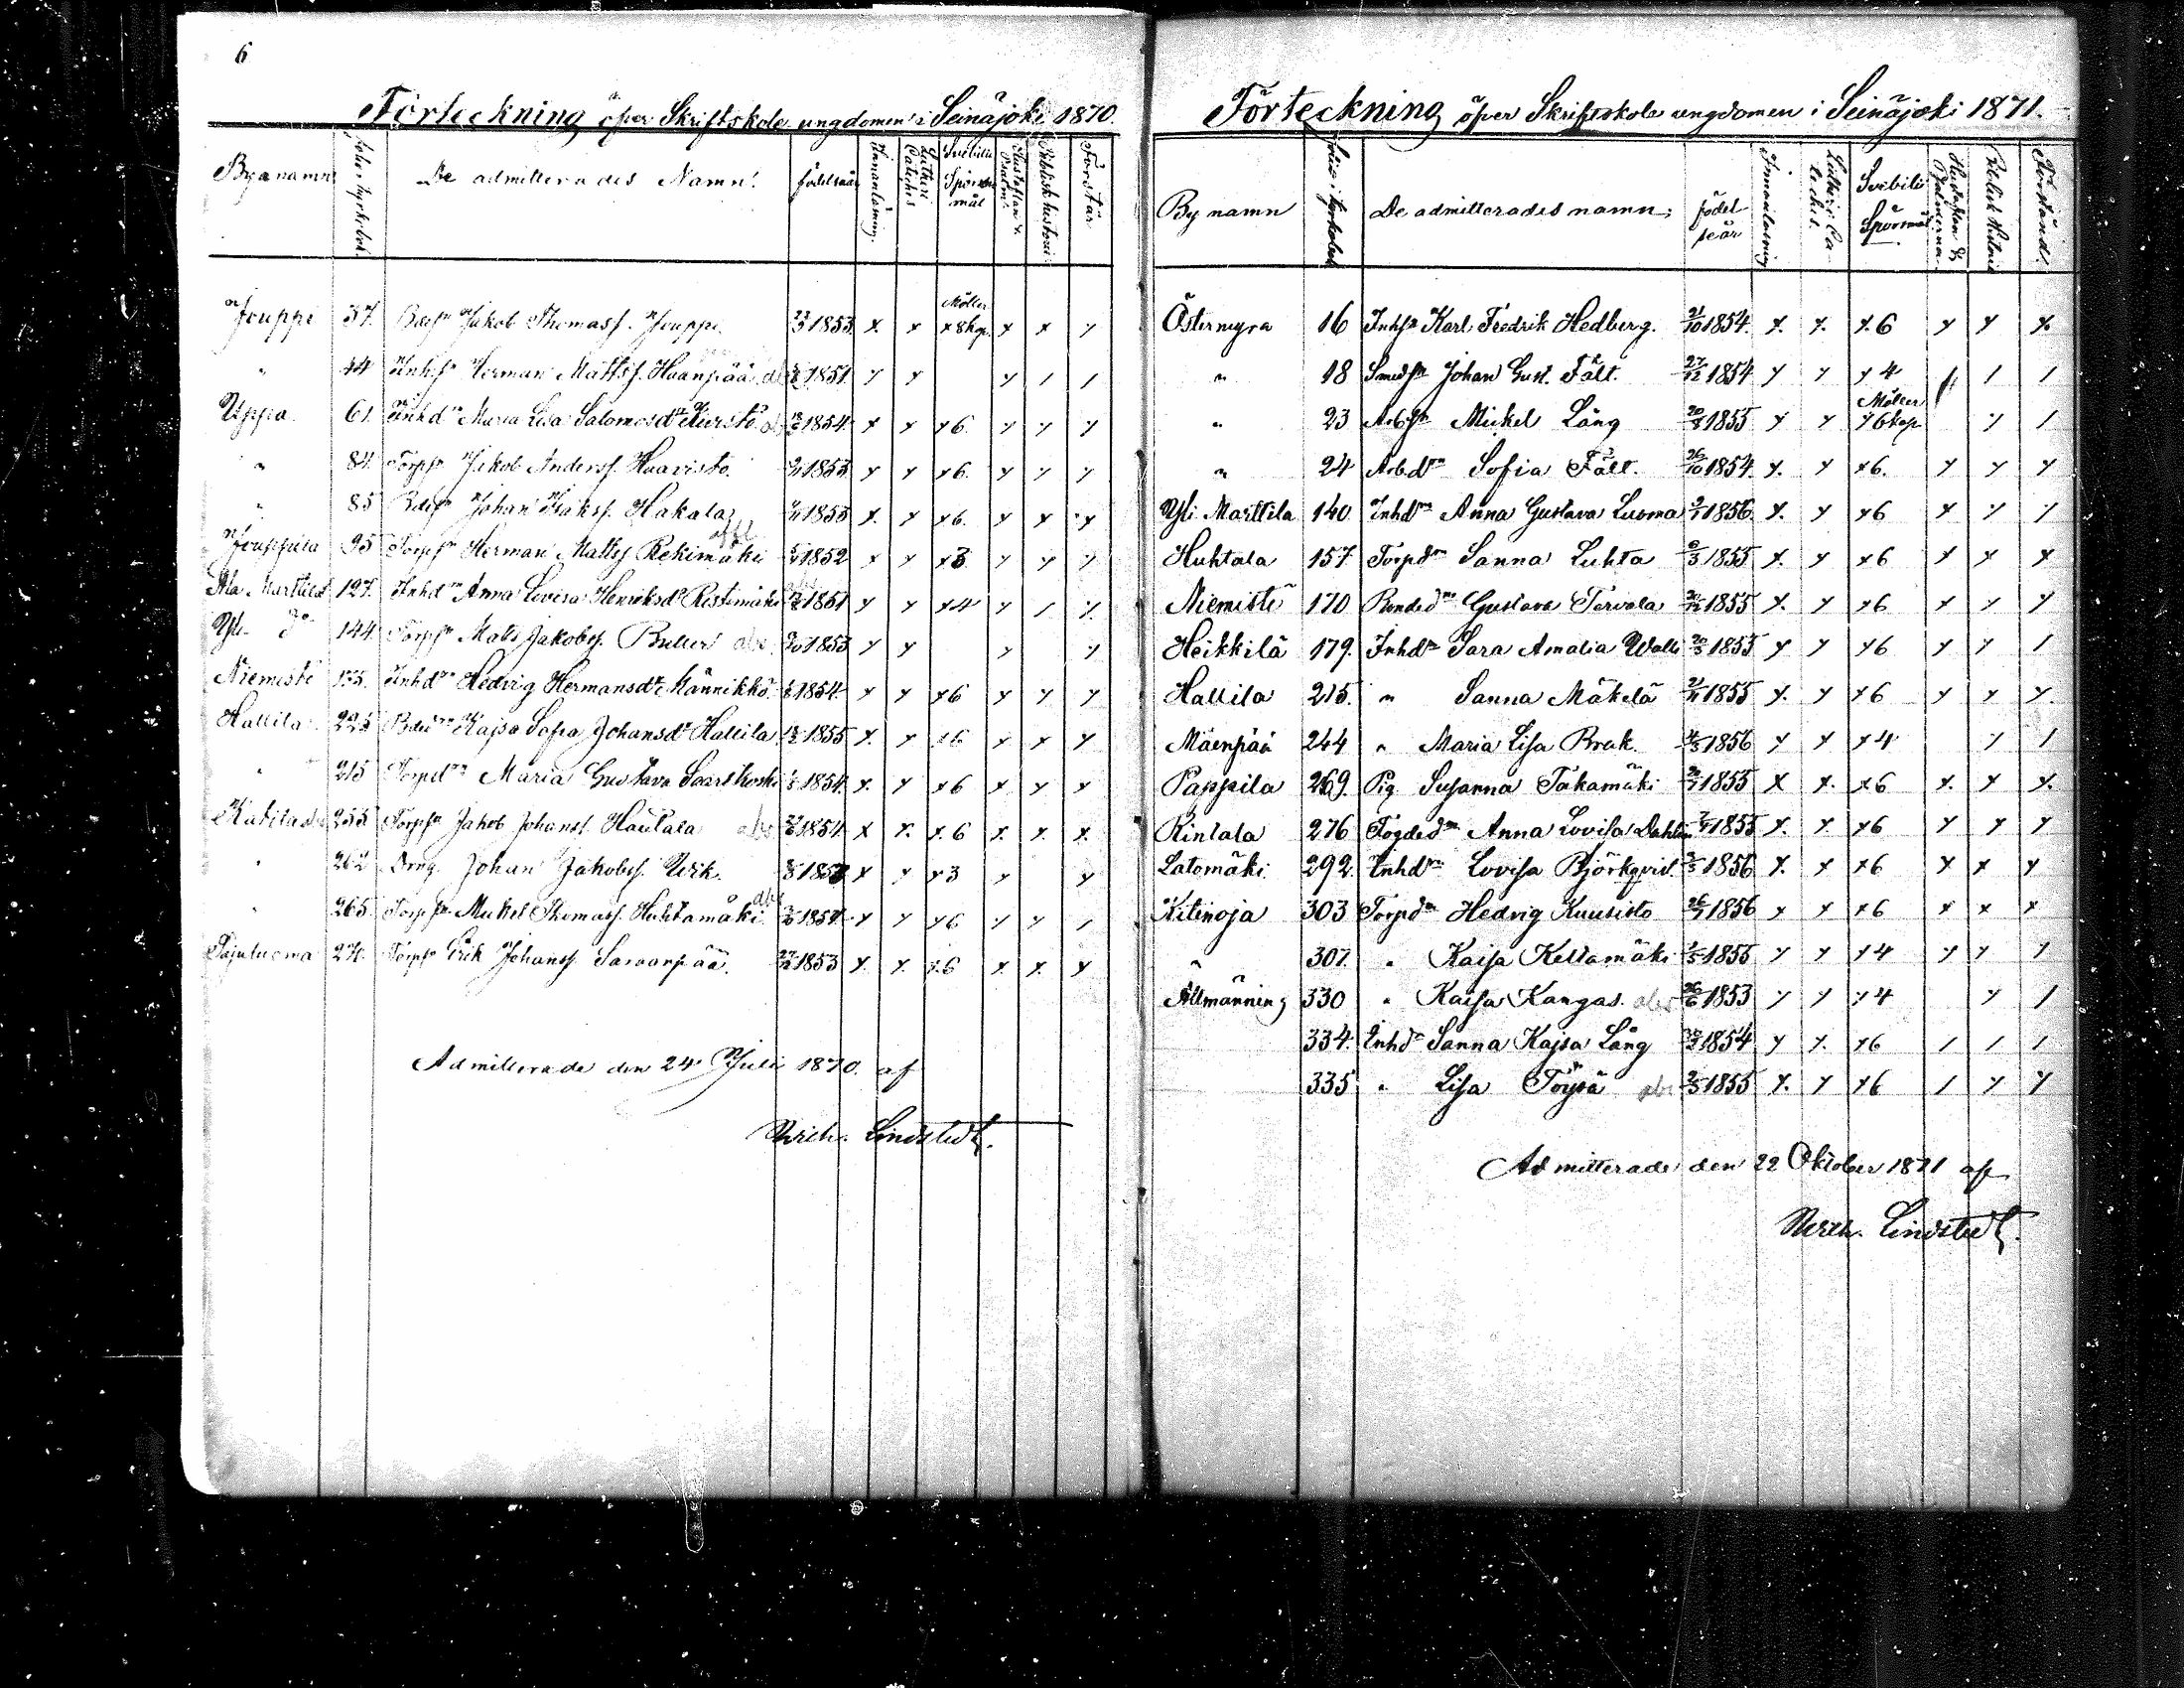 6
Förteckning öfver Skriftskole ungdomen i Seinäjoki 1870.
Byanamn folio i kyrkobok. De admitterades Namn. födelseår Innanläsning. Lutheri Cateches Svebilii Spörsmål Hustaflan v. Psalm. Biblisk historie Förstår
Jouppi 37. Bdesn Jakob Thomass. Jouppi. 1853. x x Möller x 8 kap. x x y
" 44 Inhsn Herman Mattss. Haanpää 1851 y y y 1 1
Uppa 61. Inhdn Maria Lisa Salomosdr Kivistö 1854. x y x 6 y y y
" 84. Torpsn Jakob Anderss. Haavisto. 1853 y y x 6. y y y
" 85 Bdesn Johan Isakss. Hakala 1853 x. y x 6. y x x
Jouppila 95 Torpsn Herman Matts Rekimäki 1852 x y x 3 y y y
Ala Marttila 127. Inhdn Anna Lovisa Henriksdr Ristimäki 1851 y y x 4 y 1 y
Yli do 144. Torpsn Mats Jakobss. Buller abs. 1853 y y y y
Niemistö 155. Inhdn Hedvig Hermansdr Männikkö. 1854. y y x 6 y y y
Hallila 225 Bdedn Kajsa Sofia Johansdr Hallila 1855 x. y x 6 x x y
" 215 Torpdn Maria Gustava Saarikoski 1854. x. y x 6 x y x
Katila 255 Torpsn Jakob Johanss. Hautala abs 1854. x x. x. 6 x. x. x.
" 262 Dreng Johan Jakobss. Wik. 1853 x y y 3 y y
" 265 Torpsn Mickel Thomass. Huhtamäki abs 1854. y y y 6 y y 1
Pajuluoma 274. Torpsn Erik Johanss. Saraanpää. 1853 y. x. x. 6 x. x. y
Admitterade den 24 Juli 1870. af
Lindstedt.
Förteckning öfver Skriftskole ungdomen i Seinäjoki 1871.
By namn folio i kyrkobok De admitterades namn; födelseår Innanläsning Lutheri Cateches. Svebilii Spörsmål Hustaflan & Psalmerna Biblisk Historie Förstånd.
Östermyra 16 Inhsn Karl Fredrik Hedberg. 21/10 1854. x. x. x. 6 y y x.
" 18 Smedsn Johan Gust. Fält. 27/12 1854 y y y 4 1 1
" 23 Arbsn Mickel Lång 1855 y y Möller y 6 kap y 1
" 24 Arbdn Sofia Fält. 26/10 1854. x. y x 6. y y y
Yli Marttila 140 Inhdn Anna Gustava Luoma 1856. x. y x 6 x y y
Huhtala 157. Torpdn Sanna Luhta 1855 x. y x 6 x y x
Niemistö 170 Bondedn Gustava Tervala 1855 x. y x 6 x y y
Heikkilä 179. Inhdn Sara Amalia Walli 1855 y y y 6 y y 1
Hallila 215. " Sanna Mäkelä 1855 x. y x 6 y y y.
Mäenpää 244 " Maria Lisa Brak. 1856 y x x 4 y 1
Pappila 269. Pig Susanna Takamäki 1855 x x. x 6 x. x x.
Rintala 276 Fogdedn Anna Lovisa Dahlin 1855 x. x x 6 y y y
Latomäki 292. Inhdn Lovisa Björkqvist 1856 x. x x 6 y x y
Kitinoja 303 Torpdn Hedvig Kuusisto 26/7 1856 x x x 6 x x x
" 307. " Kaisa Keltamäki 1855 y y y 4 y y y
Allmänning 330 " Kaisa Kangas. abs 26/6 1853 y y y 4 y 1
334. Inhdn Sanna Kajsa Lång 1854 y y. x 6 1 1 1
335 " Lisa Töysä abs 1855 x. y x 6 1 y y
Admitterade den 22 Oktober 1871 af
Lindstedt.